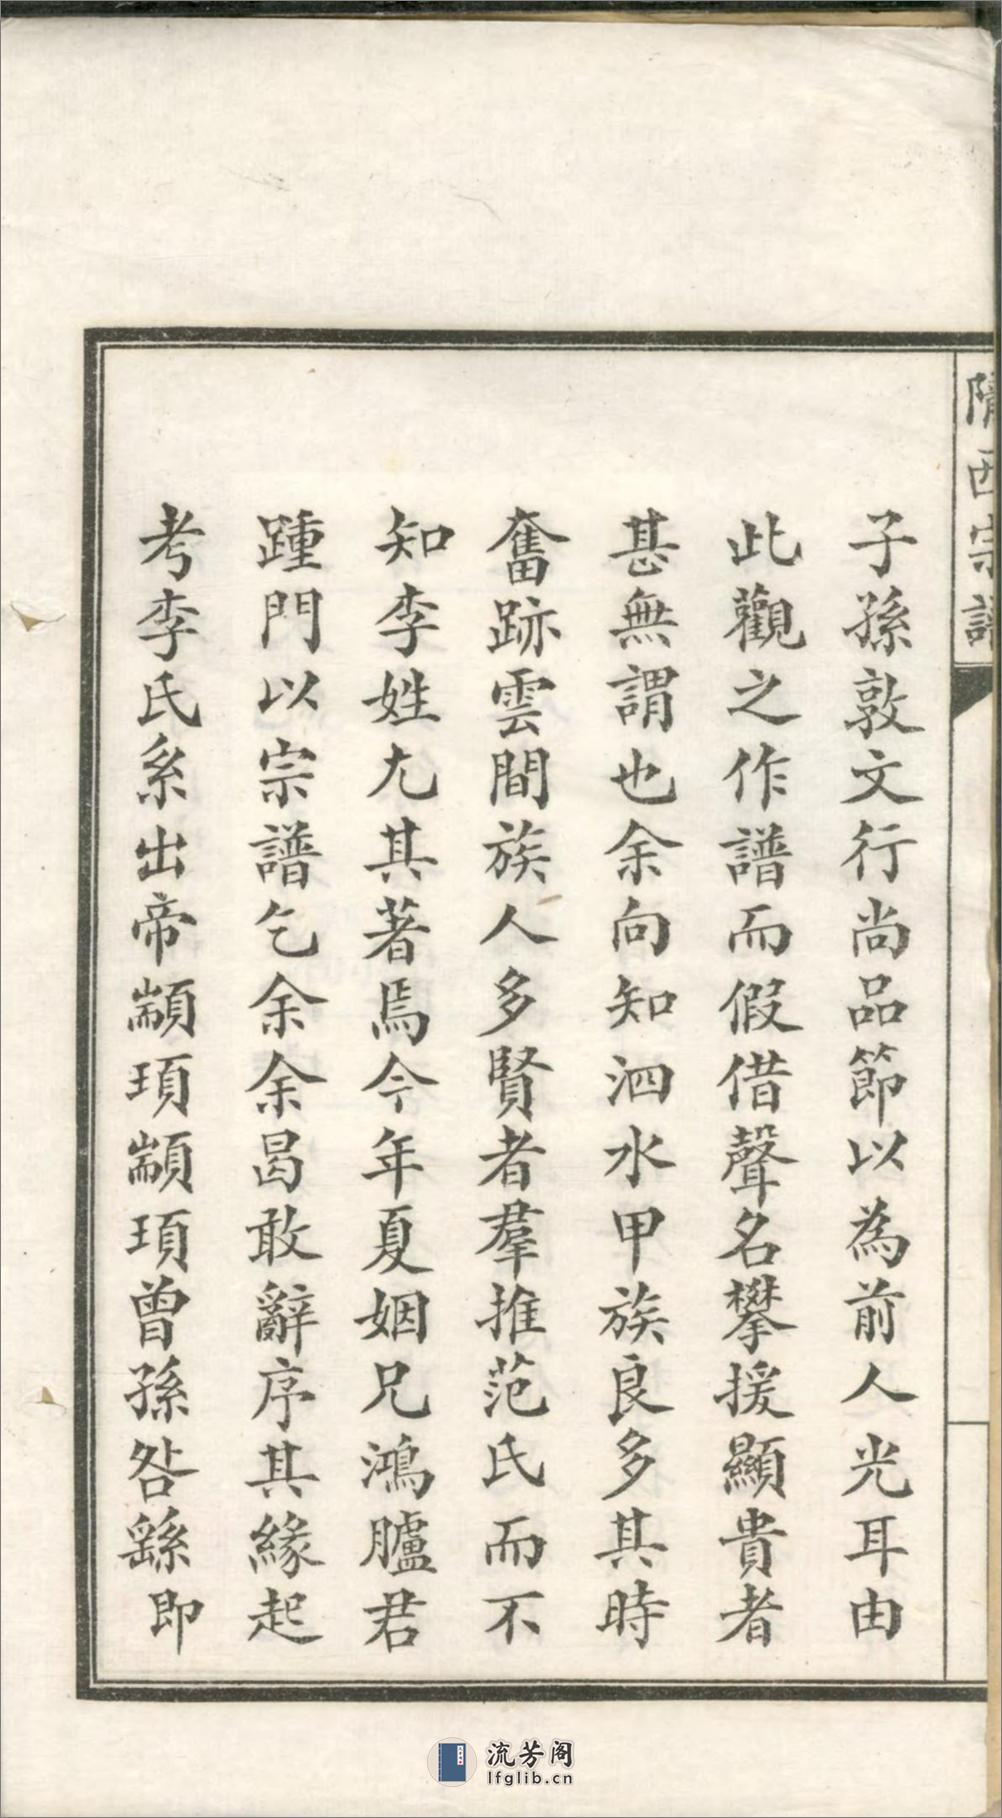 隴西宗譜
子孫敦文行尚品節以為前人光耳由
此觀之作譜而假借聲名攀援顯貴者
甚無謂也余向知泗水甲族良多其時
奮跡雲間族人多賢者羣推范氏而不
知李姓尤其著焉今年夏姻兄鴻臚君
踵門以宗譜乞余余曷敢辭序其緣起
考李氏系出帝顓頊顓頊曾孫咎繇即
流芳阁
lfglib.cn